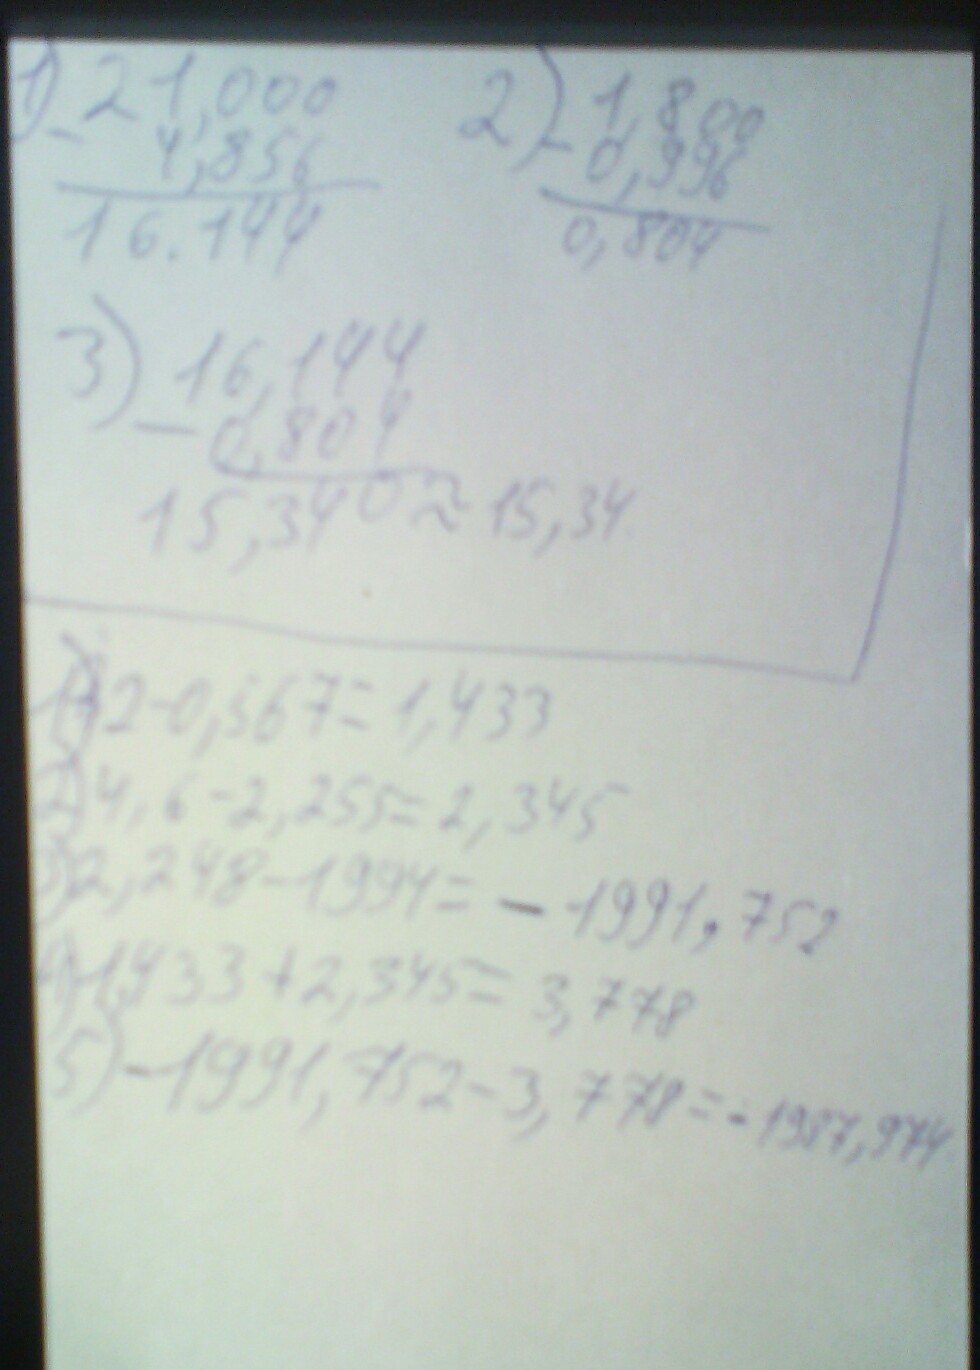 1) 21,000
- 4,856
16.144
2) - 1,800
0,996
0,804
3) 16,144
- 0,804
15,340 ≈ 15,34
1) 2-0,567=1,433
2) 4,6-2,255=2,345
3) 2,248-1994= - 1991,752
4) 1,433+2,345=3,778
5) -1991,752-3,778=-1987,974